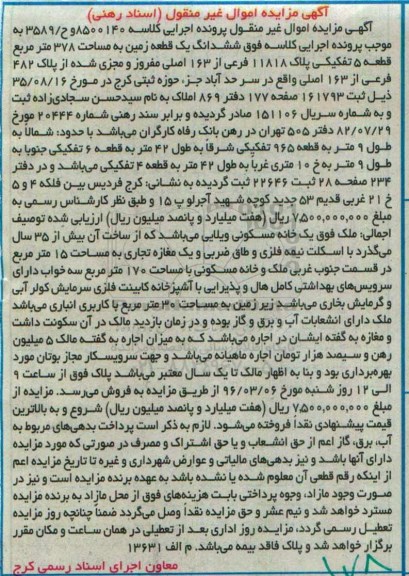 آگهی مزایده اموال غیر منقول (اسناد رهنی)
آگهی مزایده اموال غیر منقول پرونده اجرایی کلاسه ۸۵۰۰۱۴۰و ح/۳۵۸۹ به
موجب پرونده اجرایی کلاسه فوق ششدانگ یک قطعه زمین به مساحت ۳۷۸ متر مربع
قطعه ۵ تفکیکی پلاک ۱۱۸۱۸ فرعی از ۱۶۳ اصلی مفروز و مجزی شده از پلاک ۴۸۲
فرعی از ۱۶۳ اصلی واقع در سر حد آباد جز، حوزه ثبتی کرج در مورخ ۳۵/۰۸/۱۶
ذیل ثبت ۱۶۱۷۹۳ صفحه ۱۷۷ دفتر ۸۶۹ املاک به نام سیدحسن سجادی‌زاده ثبت
و به شماره سریال ۱۵۱۱۰۶ صادر گردیده و برابر سند رهنی شماره ۲۰۴۴۴ مورخ
۸۲/۰۷/۲۹ دفتر ۵۰۵ تهران در رهن بانک رفاه کارگران می‌باشد با حدود: شمالا به
طول ۹ متر به قطعه ۹۶۵ تفکیکی شرقا به طول ۴۲ متر به قطعه ۶ تفکیکی جنوبا به
طول ۹ متر به خ ۱۰ متری غربا به طول ۴۲ متر به قطعه ۴ تفکیکی می‌باشد و در دفتر
۲۳۴ صفحه ۲۸ ثبت ۲۲۶۴۶ ثبت گردیده به نشانی: کرج فردیس بین فلکه ۴ و ۵
خ ۲۱ غربی قدیم ۵۳ جدید کوچه شهید آجرلو پ ۱۵ و طبق نظر کارشناس رسمی به
مبلغ ۷,۵۰۰,۰۰۰,۰۰۰ ریال (هفت میلیارد و پانصد میلیون ریال) ارزیابی شده توصیف
اجمالی: ملک فوق یک خانه مسکونی ویلایی می‌باشد که از ساخت آن بیش از ۳۵ سال
می‌گذرد با اسکلت نیمه فلزی و طاق ضربی و یک مغازه تجاری به مساحت ۱۵ متر مربع
در قسمت جنوب غربی ملک و خانه مسکونی با مساحت ۱۷۰ متر مربع سه خواب دارای
سرویس‌های بهداشتی کامل هال و پذیرایی با آشپزخانه کابینت فلزی سرمایش کولر آبی
و گرمایش بخاری می‌باشد زیر زمین به مساحت ۳۰ متر مربع با کاربری انباری می‌باشد
ملک دارای انشعابات آب و برق و گاز بوده و در زمان بازدید مالک در آن سکونت داشت
و مغازه به گفته ایشان در اجاره می‌باشد که به میزان اجاره به گفته مالک ۵ میلیون
رهن و سیصد هزار تومان اجاره ماهیانه می‌باشد و جهت سرویسکار مجاز بوتان مورد
بهره‌برداری بود و بنا به اظهار مالک تا یک سال معتبر می‌باشد پلاک فوق از ساعت ۹
الی ۱۲ روز شنبه مورخ ۹۶/۰۳/۰۶ از طریق مزایده به فروش می‌رسد. مزایده از
مبلغ ۷,۵۰۰,۰۰۰,۰۰۰ ریال (هفت میلیارد و پانصد میلیون ریال) شروع و به بالاترین
قیمت پیشنهادی نقدا فروخته می‌شود. لازم به ذکر است پرداخت بدهی‌های مربوط به
آب، برق، گاز اعم از حق انشعاب و یا حق اشتراک و مصرف در صورتی که مورد مزایده
دارای آنها باشد و نیز بدهی‌های مالیاتی و عوارض شهرداری و غیره تا تاریخ مزایده اعم
از اینکه رقم قطعی آن معلوم شده یا نشده باشد به عهده برنده مزایده است و نیز در
صورت وجود مازاد، وجوه پرداختی بابت هزینه‌های فوق از محل مازاد به برنده مزایده
مسترد خواهد شد و نیم عشر و حق مزایده نقداً وصول می‌گردد ضمناً چنانچه روز مزایده
تعطیل رسمی گردد، مزایده روز اداری بعد از تعطیلی در همان ساعت و مکان مقرر
برگزار خواهد شد و پلاک فاقد بیمه می‌باشد. م الف ۱۳۶۳۱
معاون اجرای اسناد رسمی کرج